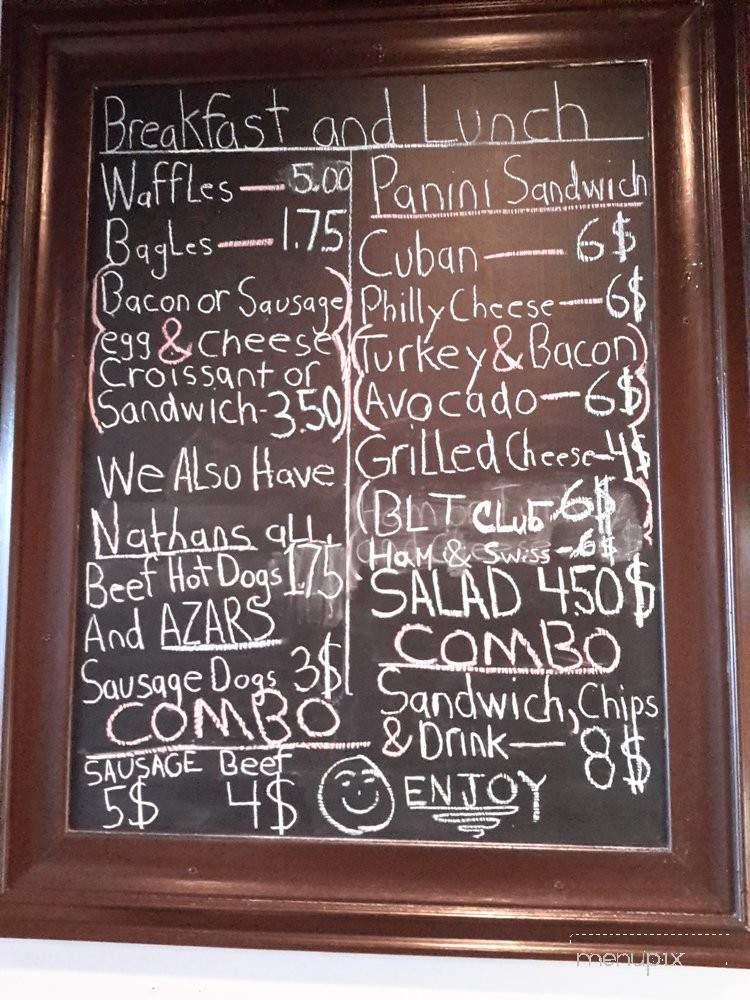 Breakfast and Lunch
Waffles — 5.00
Bagles — 1.75
(Bacon or Sausage
egg & cheese
Croissant or
Sandwich - 3.50)
We Also Have
Nathans all
Beef Hot Dogs 1.75
And AZARS
Sausage Dogs 3$
COMBO
SAUSAGE Beef
5$ 4$
Panini Sandwich
Cuban — 6$
Philly Cheese — 6$
(Turkey & Bacon)
(Avocado — 6$)
Grilled Cheese — 4$
(BLT CLub - 6$)
Ham & Swiss - 6$
SALAD 4.50$
COMBO
Sandwich, Chips
& Drink — 8$
ENJOY
menupix